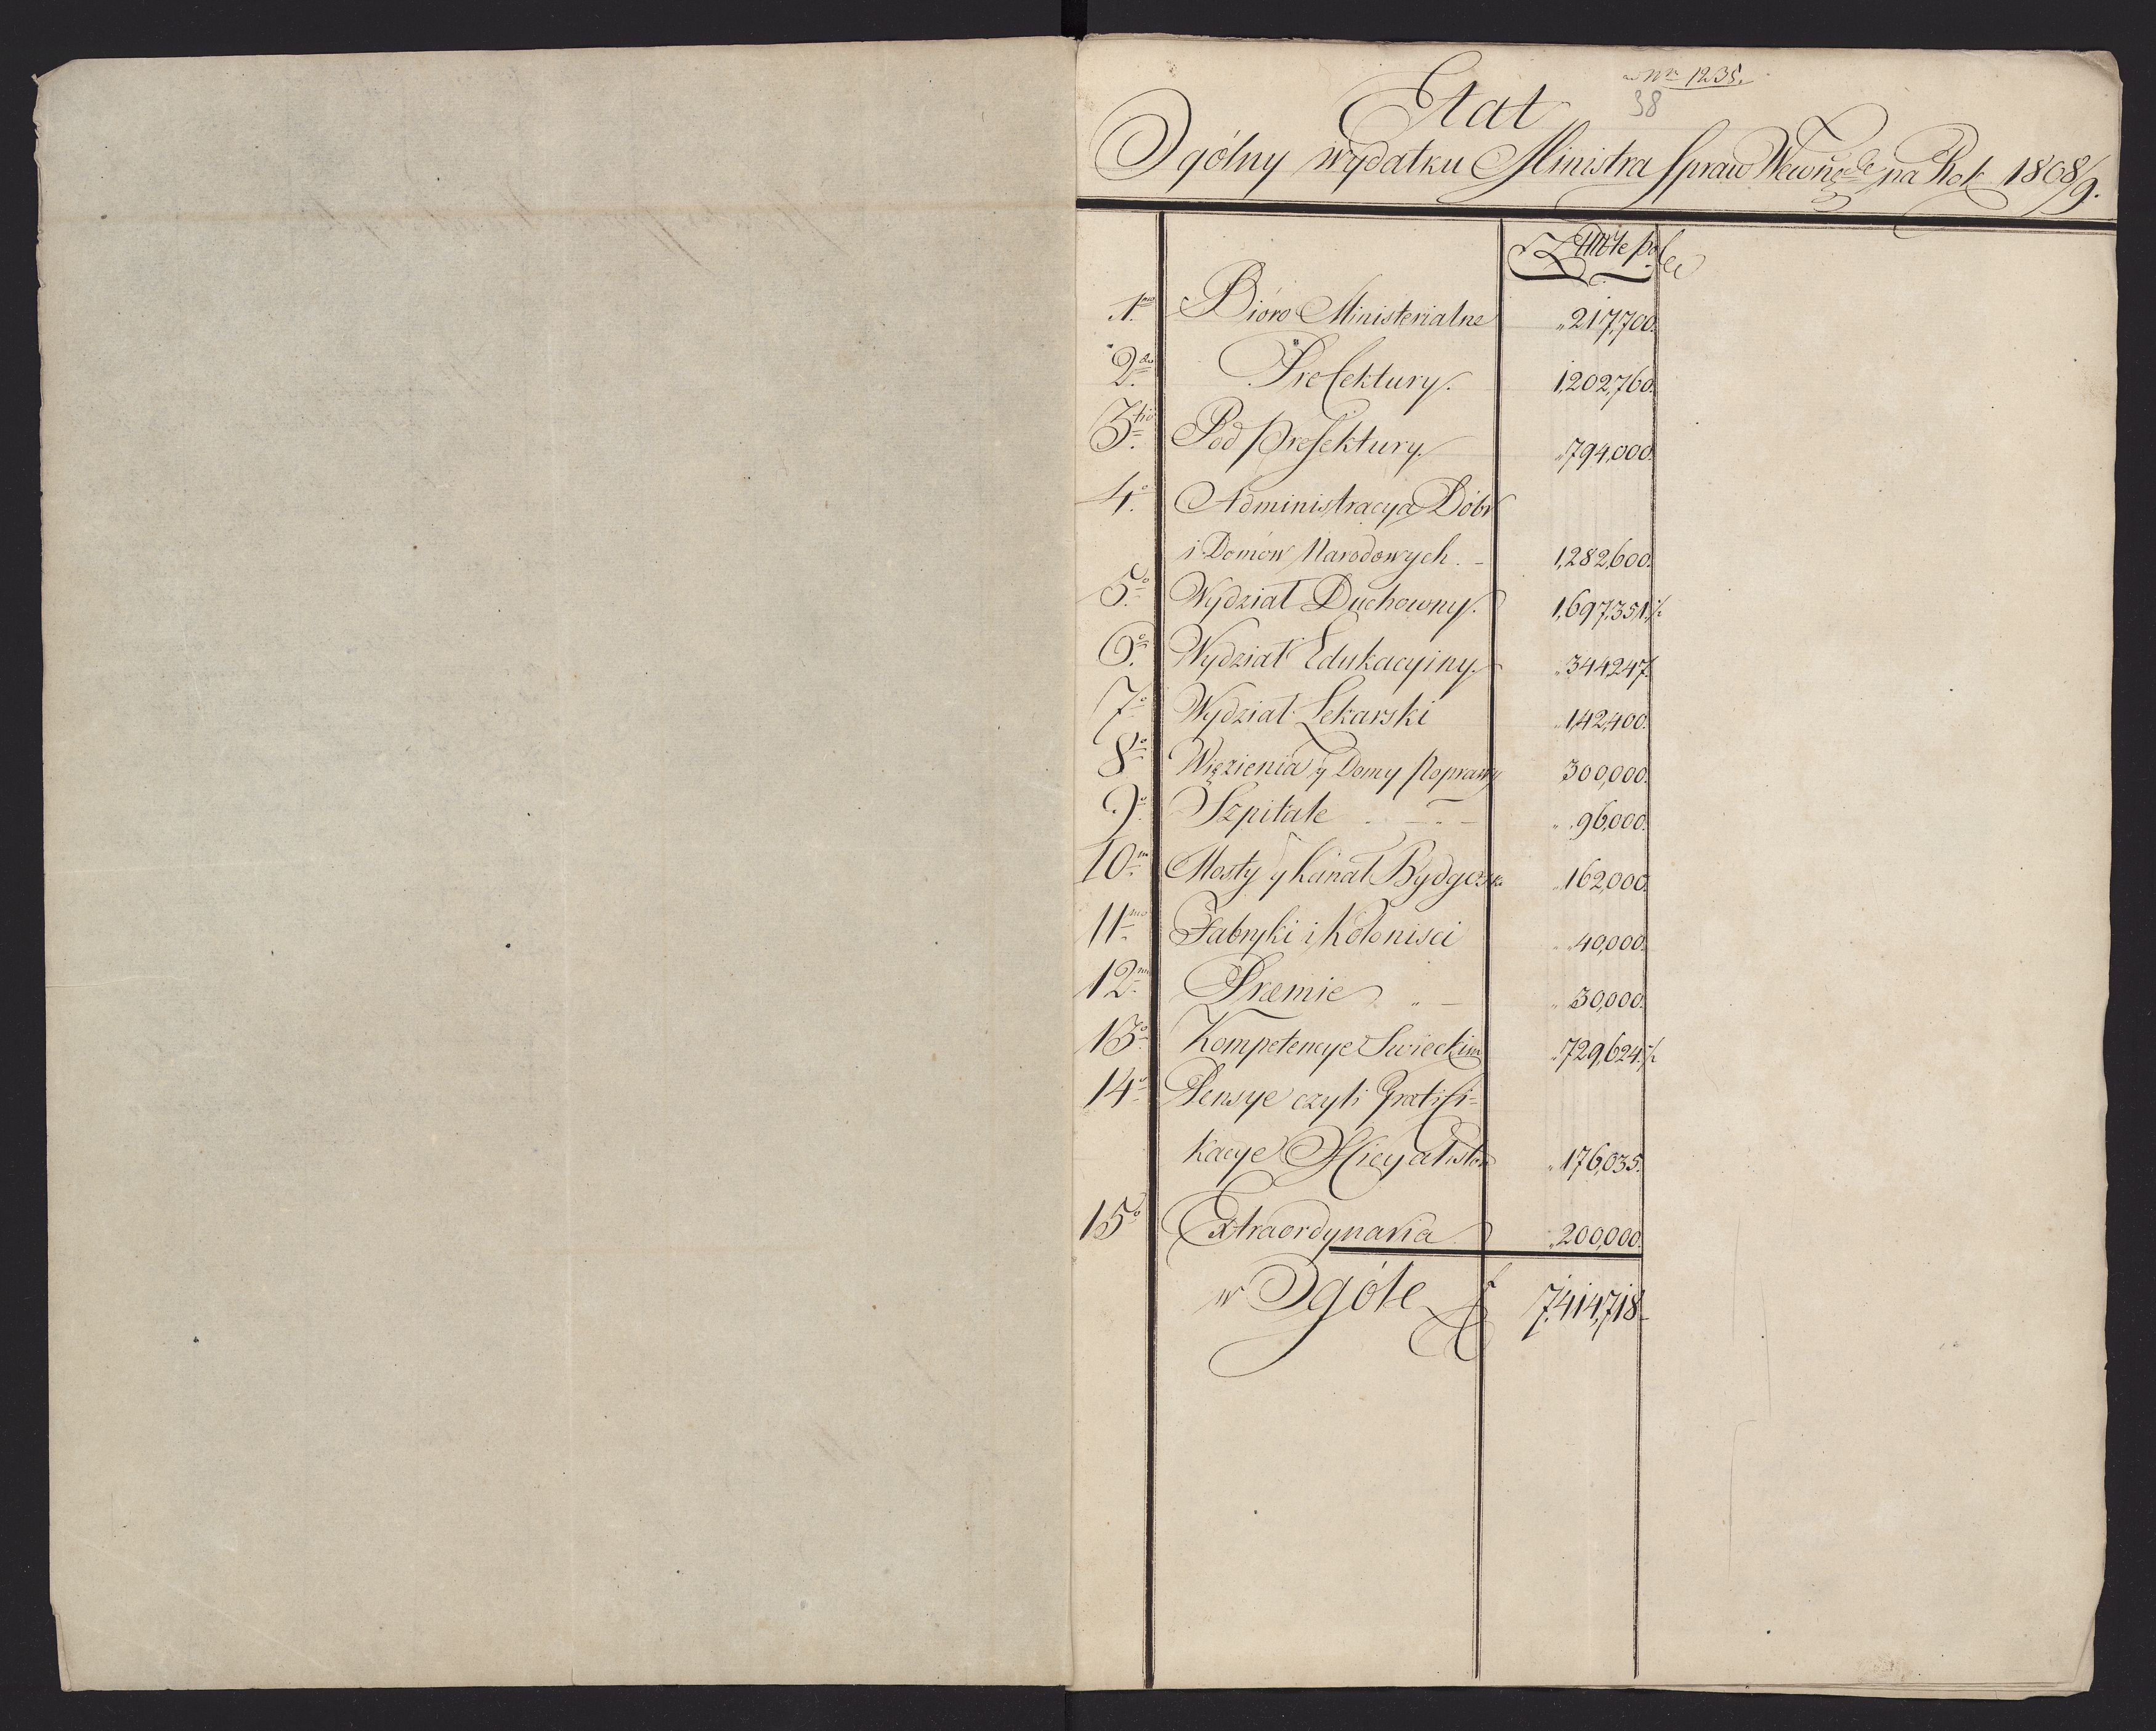 ad Nrm 1235.
38
Etat
Ogólny wydatku Ministra Spraw Wewnę. na Rok 1808/9.
Złłote pol
1mo Bióro Ministerialne "217,700.
2do Prefektury. 1,202,760.
3tio Pod prefektury. "794,000.
4o Administracya Dóbr
i Domów Narodowych. - 1,282,600.
5o Wydział Duchowny. 1,697,351,½
6o Wydział Edukacyiny. "344,247.
7o Wydział Lekarski "142,400.
8o Więzienia y Domy Poprawy 300,000.
9o Szpitale " 96,000.
10mo Mosty y Kanał Bydgosk. "162,000.
11mo Fabryki i Koloniści "40,000.
12mo Præmie " - "30,000.
13o Kompetencye Swieckim "729,624.½
14o Pensye czyli Gratifi-
kacye Officyalistom "176,035.
15o Extraordynaria "200,000.
w Ogóle f 7,414,718.